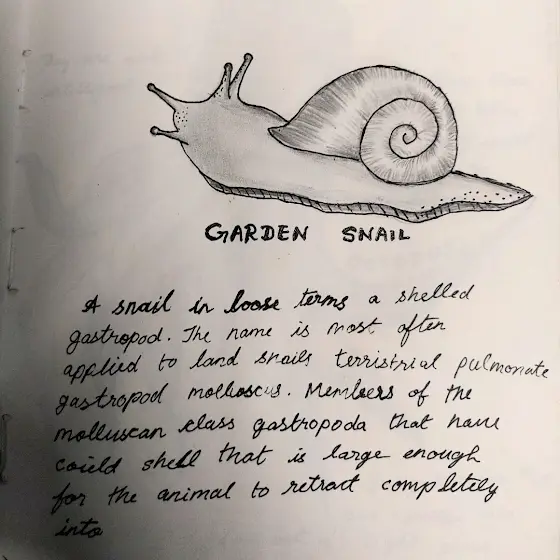 GARDEN SNAIL
A snail in loose terms a shelled
gastropod. The name is most often
applied to land snails terristrial pulmonate
gastropod molluscus. Members of the
molluscan class gastropoda that have
coield shell that is large enough
for the animal to retract completely
into